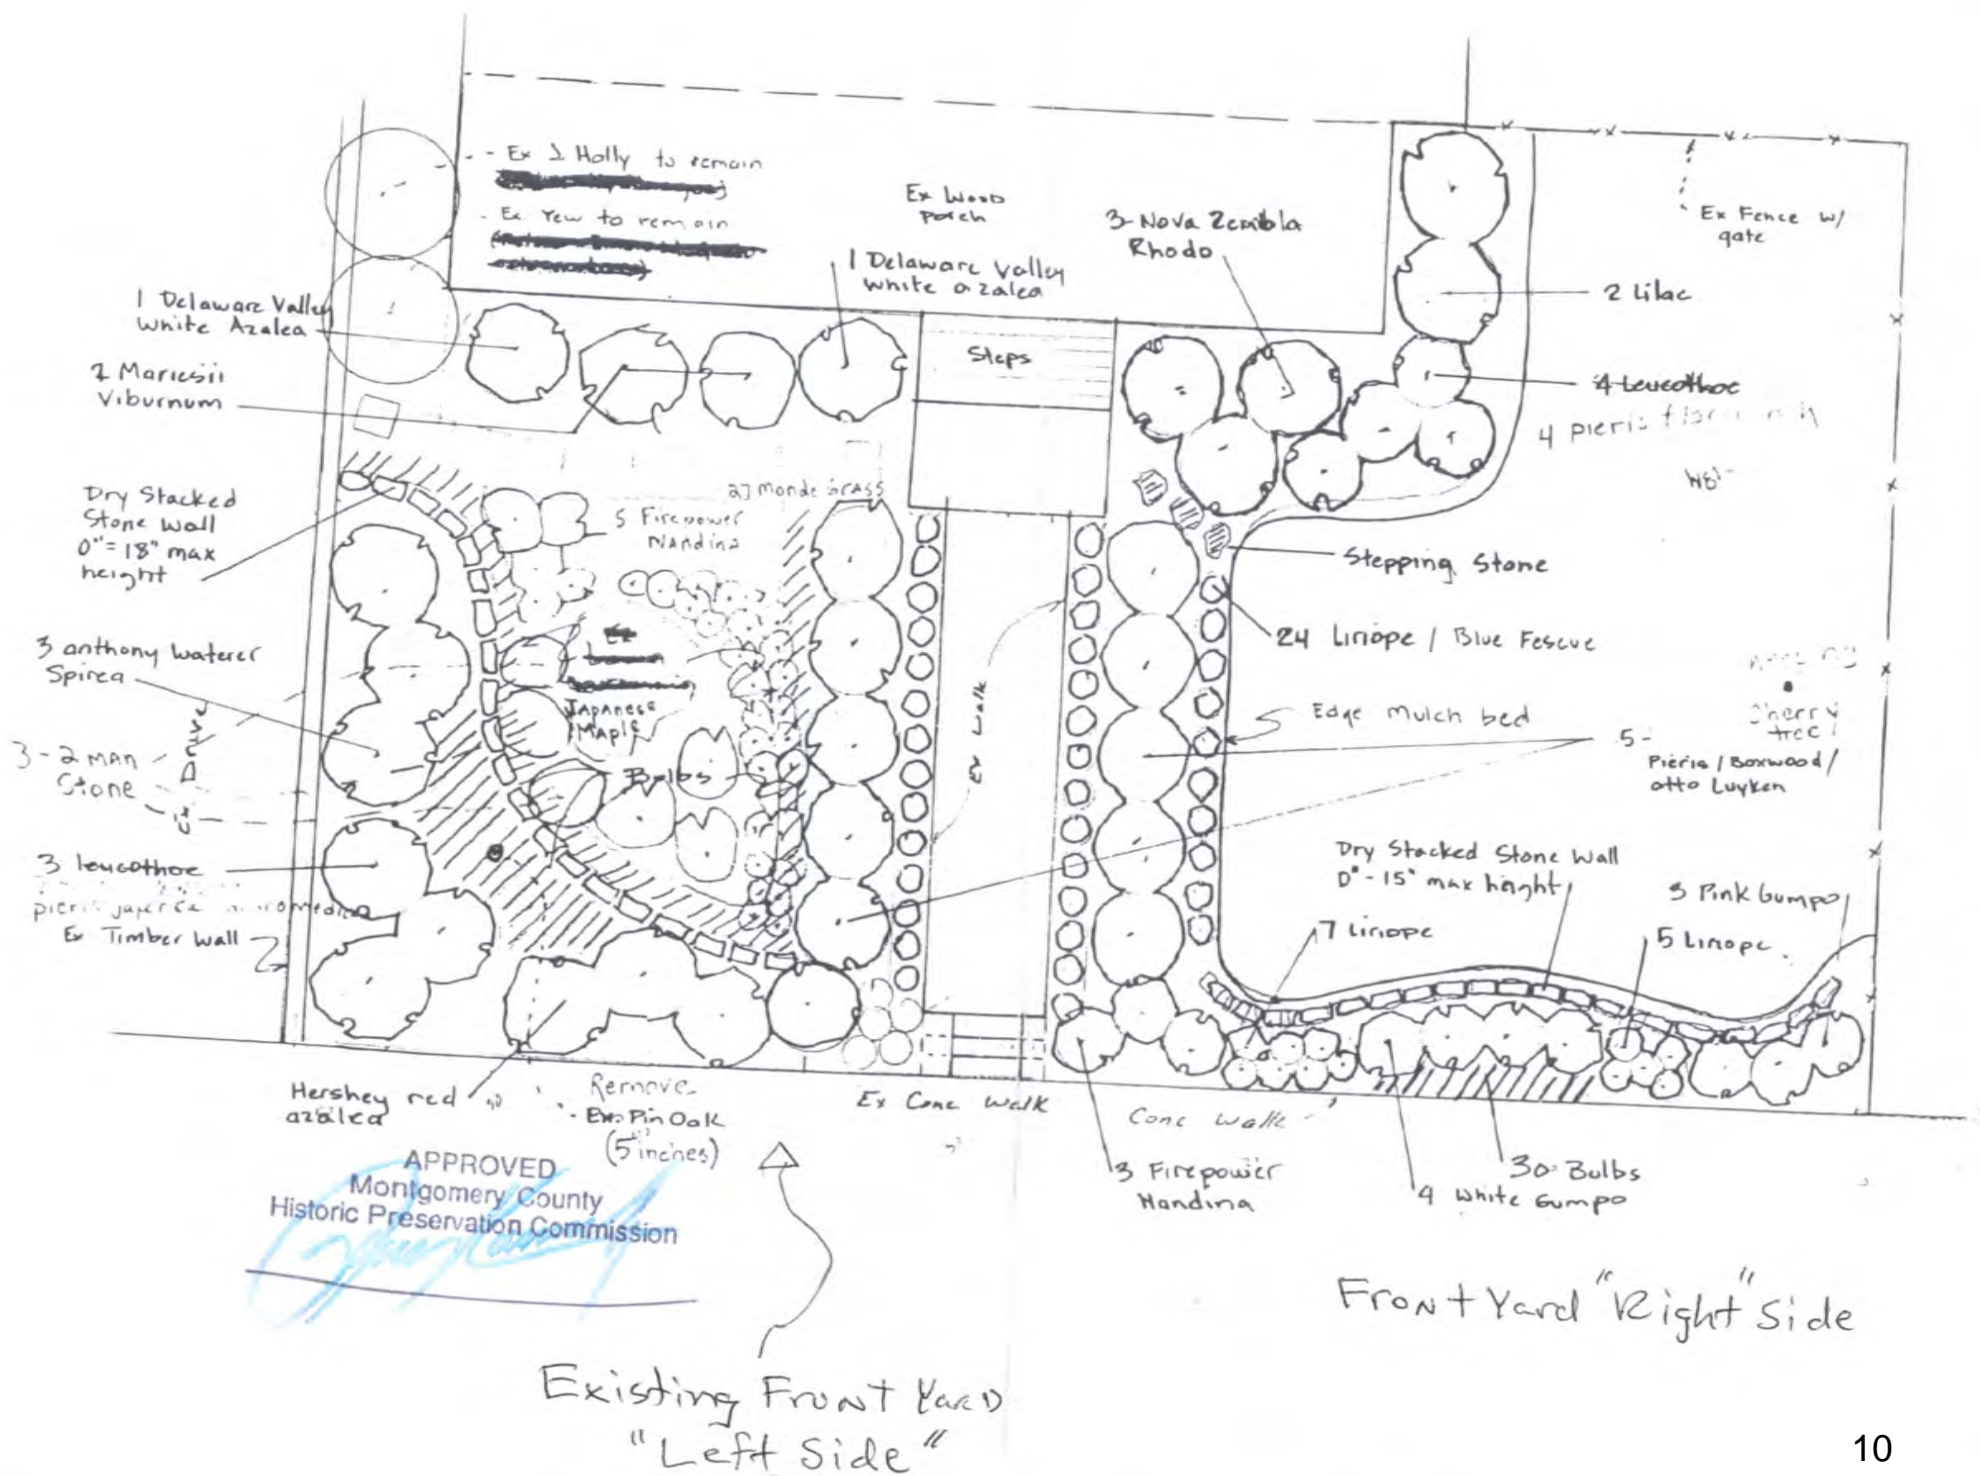 - Ex J Holly to remain
- Ex Yew to remain
Ex Wood
Porch
3-Nova Zembla
Rhodo
Ex Fence w/
gate
1 Delaware Valley
white azalea
1 Delaware Valley
White Azalea
2 Lilac
Steps
2 Mariesii
Viburnum
4 Leucothoe
4 pieris
27 monde GRASS
Dry Stacked
Stone Wall
0"=18" max
height
5 Firepower
NANdina
Stepping Stone
24 Liriope / Blue Fescue
3 anthony waterer
Spirea
JAPANESE
MAPLE
Ex Walk
Edge mulch bed
Cherry
tree
5-
Pieris / Boxwood /
otto Luyken
3-2 MAN
Stone
Ex Drive
Bulbs
3 leucothoe
Ex Timber Wall
Dry Stacked Stone Wall
0"-15" max height
3 Pink Gumpo
7 Liriope
5 Liriope
Hershey red
azalea
Remove
- Ex Pin Oak
(5 inches)
Ex Conc Walk
Conc Walk
3 Firepower
Nandina
30 Bulbs
4 White Gumpo
APPROVED
Montgomery County
Historic Preservation Commission
Front Yard "Right" Side
Existing Front Yard
"Left Side"
10